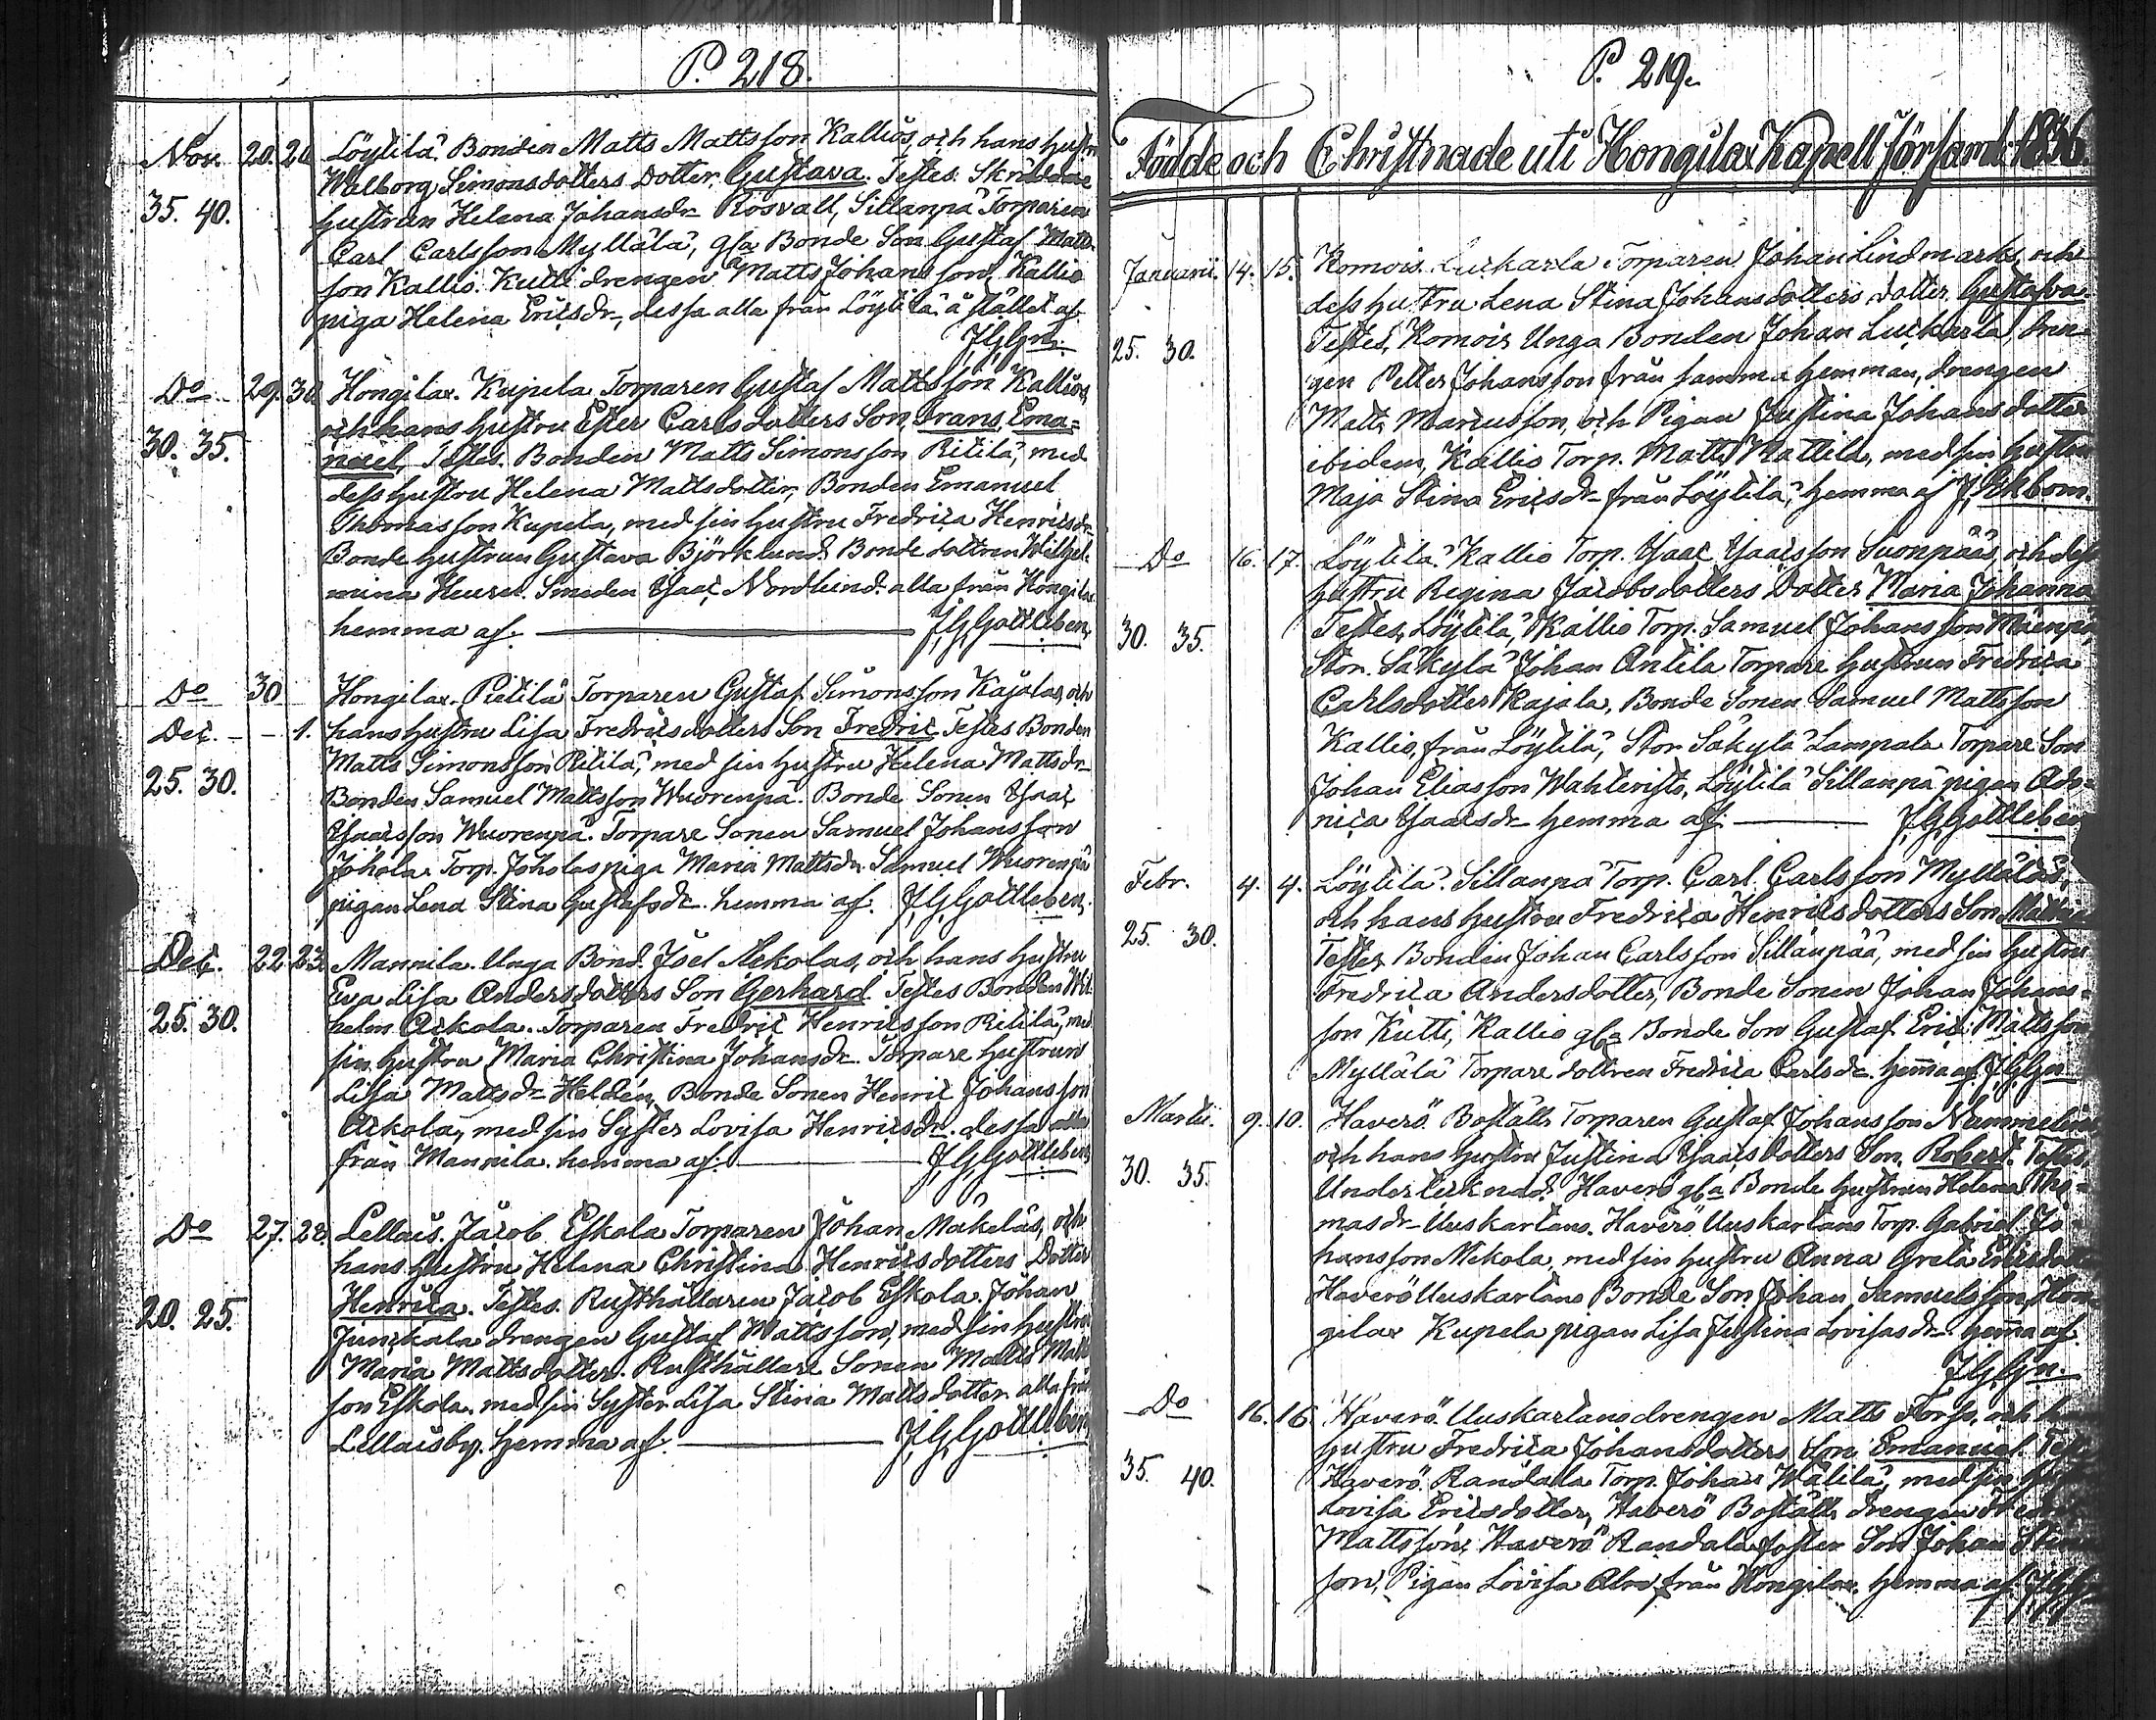 P. 218.
Nov. 20. 20. Löytilä. Bonden Matts Mattsson Kallios, och hans hustru
Walborg Simonsdotters Dotter, Gustava. Testes.
35. 40. hustrun Helena Johansdr. Rosvall, Sillanpä Torparen
Carl Carlsson Myllälä, gla Bonde Son Gustaf Matts
son Kallio. Kutti drengen Matts Johansson, Kallio
piga Helena Ericsdr, dessa alla från Löytilä, å stället af.
JGGn.
Do 29. 30 Hongilax. Kupela Torparen Gustaf Mattsson Kallios
och hans hustru Ester Carlsdotters Son, Frans Ema-
30. 35. nuel, Testes. Bonden Matts Simonsson Pitilä, med
dess hustru Helena Mattsdotter, Bonden Emanuel
Thomasson Kupela, med sin hustru Fredrica Henricsdr.
Bonde hustrun Gustava Björklund. Bonde dottren Wilhel-
mina Heuren. Smeden Isaac Nordlund. alla från Hongilax
hemma af. JGGottleben.
Do 30 Hongilax. Pietilä Torparen Gustaf Simonsson Kajalas, och
Dec. - - 1. hans hustru Lisa Fredricsdotters Son Fredric Testes Bonden
Matts Simonsson Pitilä, med sin hustru Helena Mattsdr
25. 30. Bonden Samuel Mattsson Wuorenpä. Bonde Sonen Isaac
Isaacsson Wuorenpä. Torpare Sonen Samuel Johansson
Johola. Torp. Joholas piga Maria Mattsdr. Samuel Wuorenpä
pigan Lena Stina Gustafsdr. hemma af. JGGottleben.
Dec. 22. 23. Mannila. Unga Bond. Joel Nekolas, och hans hustru
Ewa Lisa Andersdotters Son Gerhard. Testes Bonden Wil-
25. 30. helm Arkola. Torparen Fredric Henricsson Pitilä, med
sin hustru Maria Christina Johansdr. Torpare hustrun
Lisa Mattsdr. Heldén, Bonde Sonen Henric Johansson
Arkola, med sin Syster Lovisa Henricsdr. dessa alla
från Mannila. hemma af. JGGottleben
Do 27. 28. Lellais. Jacob Eskola Torparen Johan Makeläs, och
hans hustru Helena Christina Henricsdotters Dotter
20. 25. Henrica. Testes. Rusthållaren Jacob Eskola. Johan
Junskala drengen Gustaf Mattsson, med sin hustru
Maria Mattsdotter. Rusthållare Sonen Matts Matts
son Eskola. med sin Syster Lisa Stina Mattsdotter. alla från
Lellaisby. hemma af. JGGottleben
P. 219.
Födde och Christnade uti Hongilax Kapell församl. 1836.
Januarii. 14. 15. Komois. Luckarla Torparen Johan Lindmarks, och
dess hustru Lena Stina Johansdotters dotter Gustafva.
25. 30. Testes, Komois Unga Bonden Johan Luckarla, Dren-
gen Petter Johansson från samma hemman, drengen
Matts Marcusson, och Pigan Justina Johansdotter
ibidem, Kallio Torp. Matts Mattila, med sin hustru
Maja Stina Ericsdr från Löytilä, hemma af J. Ekbom.
Do 16. 17. Löytilä. Kallio Torp. Isaac Isaacsson Suonpääs, och dess
hustru Regina Jacobsdotters Dotter Maria Johanna
30. 35. Testes, Löytilä Kallio Torp. Samuel Johansson Mäenpä
Stor. Säkylä Johan Antila Torpare hustrun Fredrica
Carlsdotter Kajala, Bonde Sonen Samuel Mattsson
Kallio, från Löytilä, Stor Säkylä Lampala Torpare Son
Johan Eliasson Wahteristo, Löytilä Sillanpä pigan Ado-
nica Isaacsdr hemma af. JGGottleben
Febr. 4. 4. Löytilä. Sillanpä Torp. Carl Carlsson Myllälas,
och hans hustru Fredrica Henricsdotters Son
25. 30. Testes Bonden Johan Carlsson Sillanpää, med sin hustru
Fredrica Andersdotter, Bonde Sonen Johan Johans-
son Kutti, Kallio gla Bonde Son Gustaf Eric Mattsson
Myllälä Torpare dottren Fredrica Carlsdr. hemma af. JGGn
Martii. 9. 10. Haverö Boställs Torparen Gustaf Johansson Nummelins
och hans hustru Justina Isaacsdotters Son, Robert. Testes
30. 35. Undertecknad. Haverö gla Bonde hustrun Helena Tho-
masdr Uuskartano. Haverö Uuskartano Torp. Gabriel Jo-
hansson Nekola, med sin hustru Anna Greta Ericsdotter
Haverö Uuskartano Bonde Son Johan Samuelsson, Hon-
gilax Kupela pigan Lisa Justina Lovisasdr. hemma af.
JGGn.
Do 16. 16. Haverö Uuskartano drengen Matts Forss, och h
hustru Fredrica Johansdotters Son Emanuel. Test
35. 40. Haverö Randala Torp. Johan Wälilä, med sin
Lovisa Ericsdotter, Haverö Boställs drengen
Mattsson, Haverö Randala foster Son Johan
son, Pigan Lovisa Alen från Hongilax. hemma af. JGG